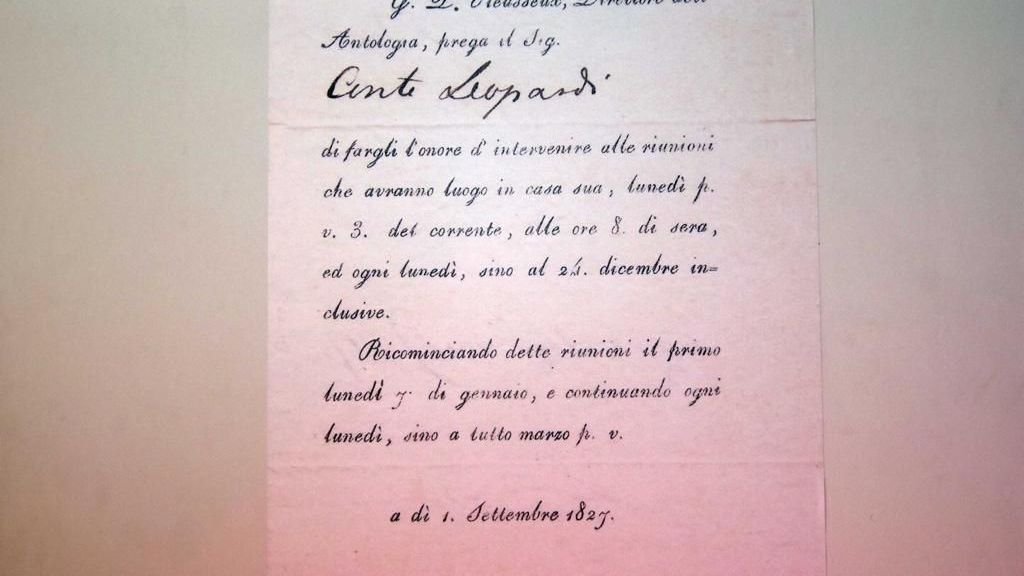 G. P. Vieusseux, Direttore dell'
Antologia, prega il Sig.
Conte Leopardi
di fargli l'onore d'intervenire alle riunioni
che avranno luogo in casa sua, lunedì p.
v. 3. del corrente, alle ore 8. di sera,
ed ogni lunedì, sino al 24. dicembre in=
clusive.
Ricominciando dette riunioni il primo
lunedì 7 di gennaio, e continuando ogni
lunedì, sino a tutto marzo p. v.
a dì 1. Settembre 1827.